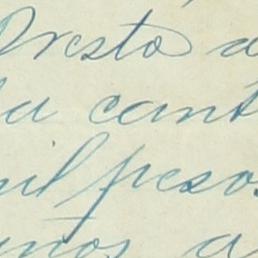 Presto a
la cant
mil pesos